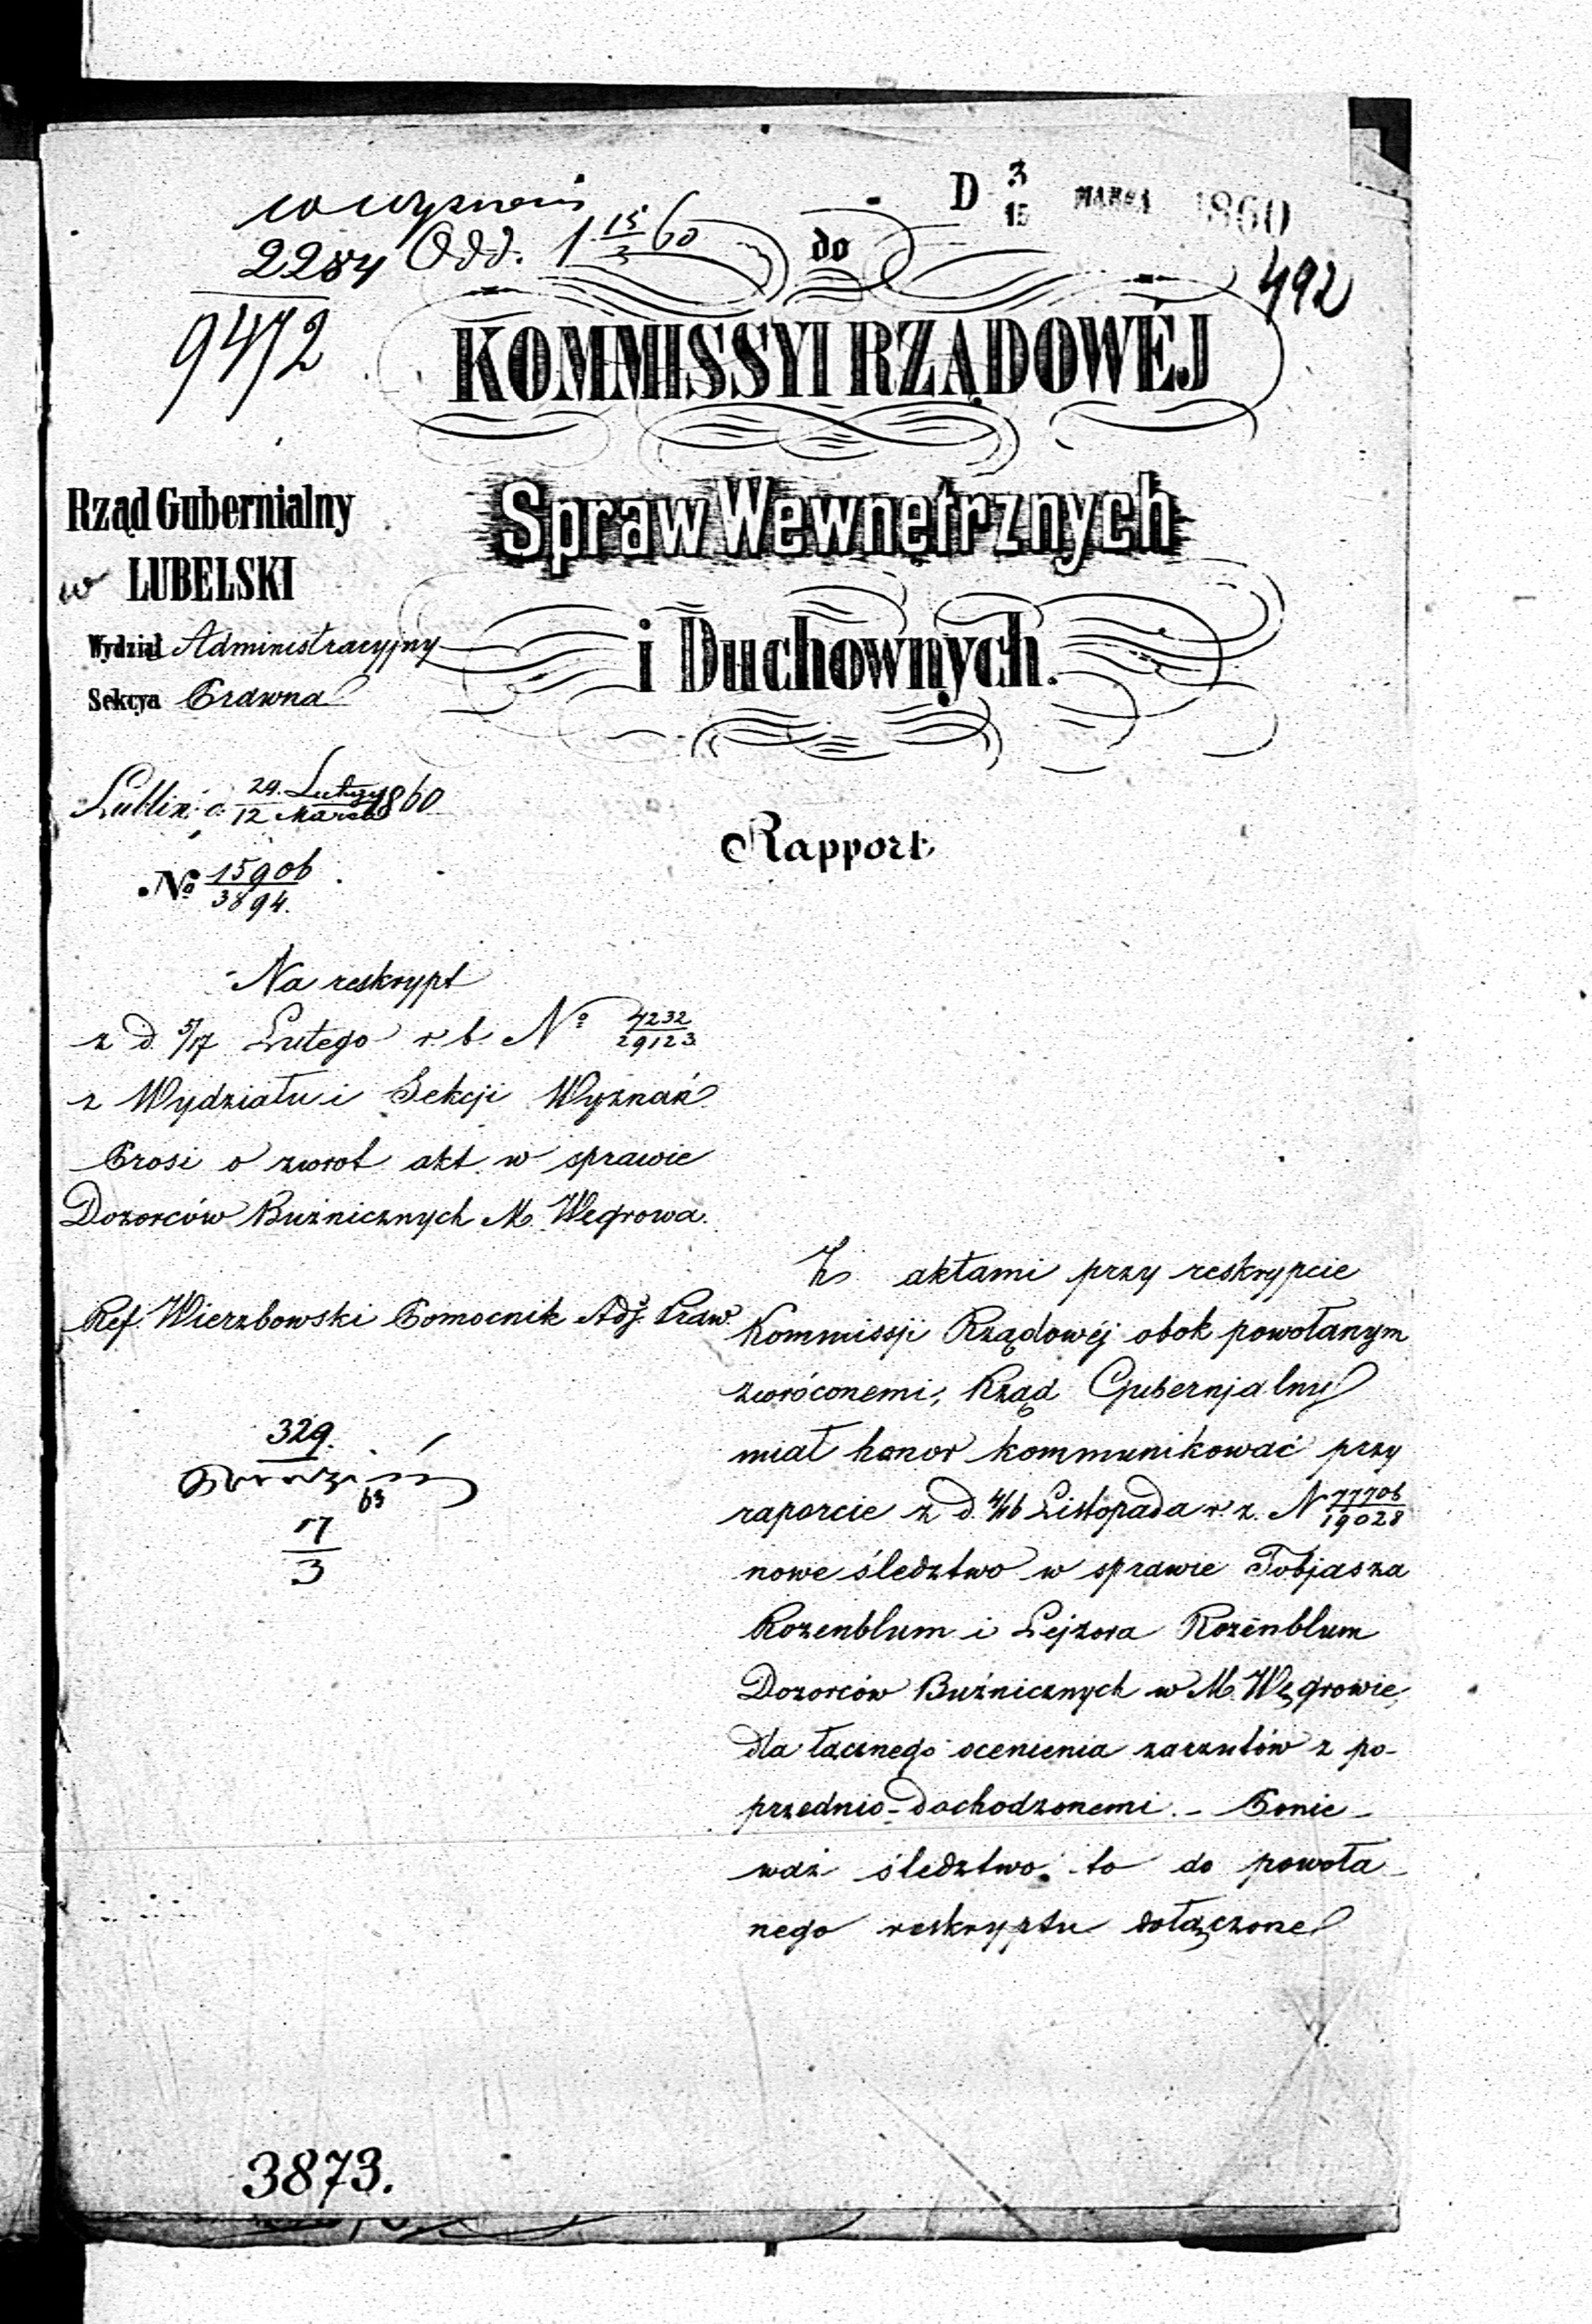 D 3/15 MARCA 1860
2284 Odd. 1 15/3 60
9472
492
do
KOMMISSYI RZĄDOWÉJ
Spraw Wewnętrznych
i Duchownych.
Rząd Gubernialny
LUBELSKI
Wydział Administracyjny
Sekcya Prawna
Lublin d. 29. Lutego/12 Marca 1860
Rapport
№ 15906/3894.
Na reskrypt
z d. 5/17 Lutego r. b. № 4232/29123
z Wydziału i Sekcji Wyznań
Prosi o zwrot akt w sprawie
Dozorców Bużnicznych M. Węgrowa.
Ref. Wierzbowski Pomocnik Adj. Praw.
329.
17/3
Z aktami przy reskrypcie
Kommissji Rządowéj obok powołanym
zwróconemi, Rząd Gubernjalny
miał honor kommunikować przy
raporcie z d. 4/16 Listopada r. z. N 77706/19028
nowe śledztwo w sprawie Tobjasza
Rozenblum i Lejzora Rozenblum
Dozorców Bużnicznych w M. Węgrowie,
dla łącznego ocenienia zarzutów z po-
przednio-dochodzonemi. - Ponie-
waż śledztwo to do powoła-
nego reskryptu dołączone
3873.